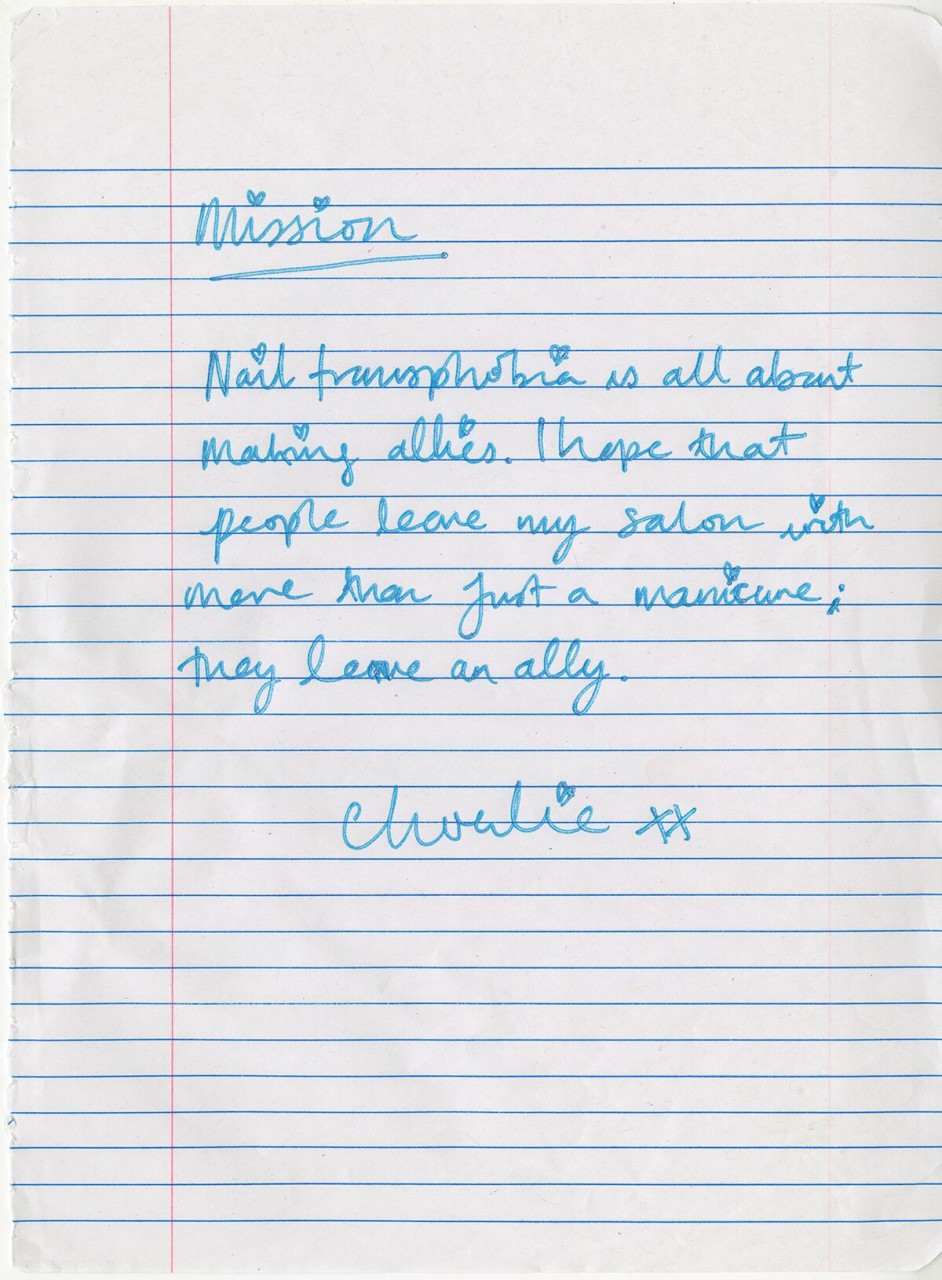 Mission
Nail transphobia is all about
making allies. I hope that
people leave my salon with
more than just a manicure;
they leave an ally.
Charlie xx